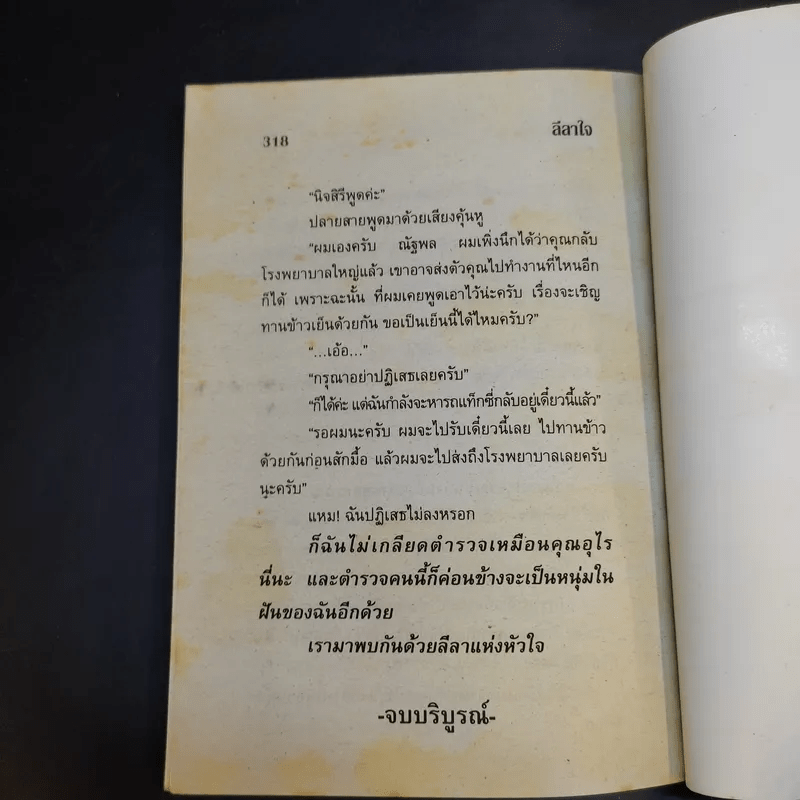 318 ลีลาใจ
“นิจสิรีพูดค่ะ”
ปลายสายพูดมาด้วยเสียงคุ้นหู
“ผมเองครับ ณัฐพล ผมเพิ่งนึกได้ว่าคุณกลับ
โรงพยาบาลใหญ่แล้ว เขาอาจส่งตัวคุณไปทำงานที่ไหนอีก
ก็ได้ เพราะฉะนั้น ที่ผมเคยพูดเอาไว้น่ะครับ เรื่องจะเชิญ
ทานข้าวเย็นด้วยกัน ขอเป็นเย็นนี้ได้ไหมครับ?”
“...เอ้อ...”
“กรุณาอย่าปฏิเสธเลยครับ”
“ก็ได้ค่ะ แต่ฉันกำลังจะหารถแท็กซี่กลับอยู่เดี๋ยวนี้แล้ว”
“รอผมนะครับ ผมจะไปรับเดี๋ยวนี้เลย ไปทานข้าว
ด้วยกันก่อนสักมื้อ แล้วผมจะไปส่งถึงโรงพยาบาลเลยครับ
นะครับ”
แหม! ฉันปฏิเสธไม่ลงหรอก
ก็ฉันไม่เกลียดตำรวจเหมือนคุณอุไร
นี่นะ และตำรวจคนนี้ก็ค่อนข้างจะเป็นหนุ่มใน
ฝันของฉันอีกด้วย
เรามาพบกันด้วยลีลาแห่งหัวใจ
-จบบริบูรณ์-